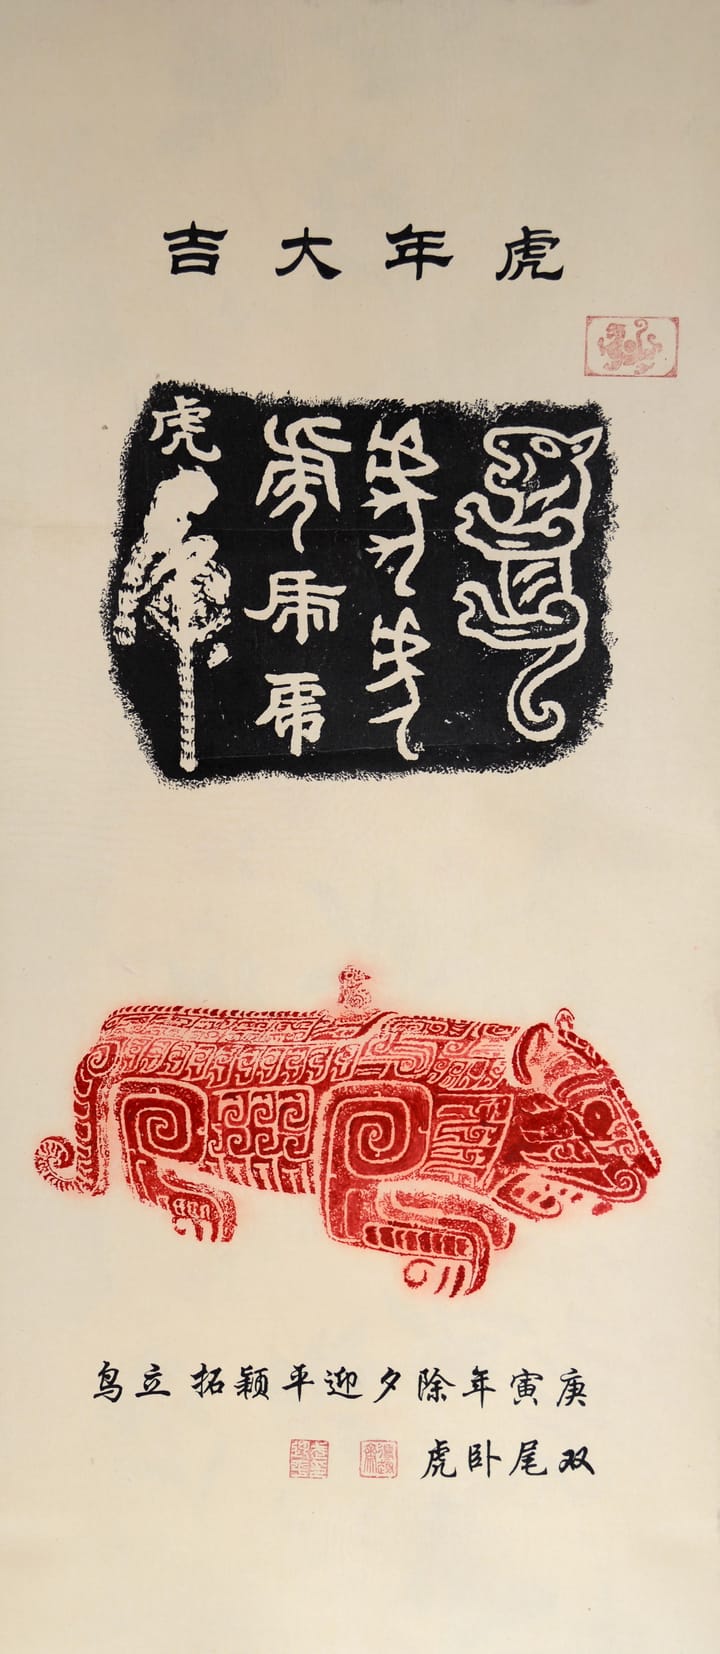 虎年大吉
虎
虎
虎
虎
庚寅年除夕迎平颖拓立鸟
双尾卧虎